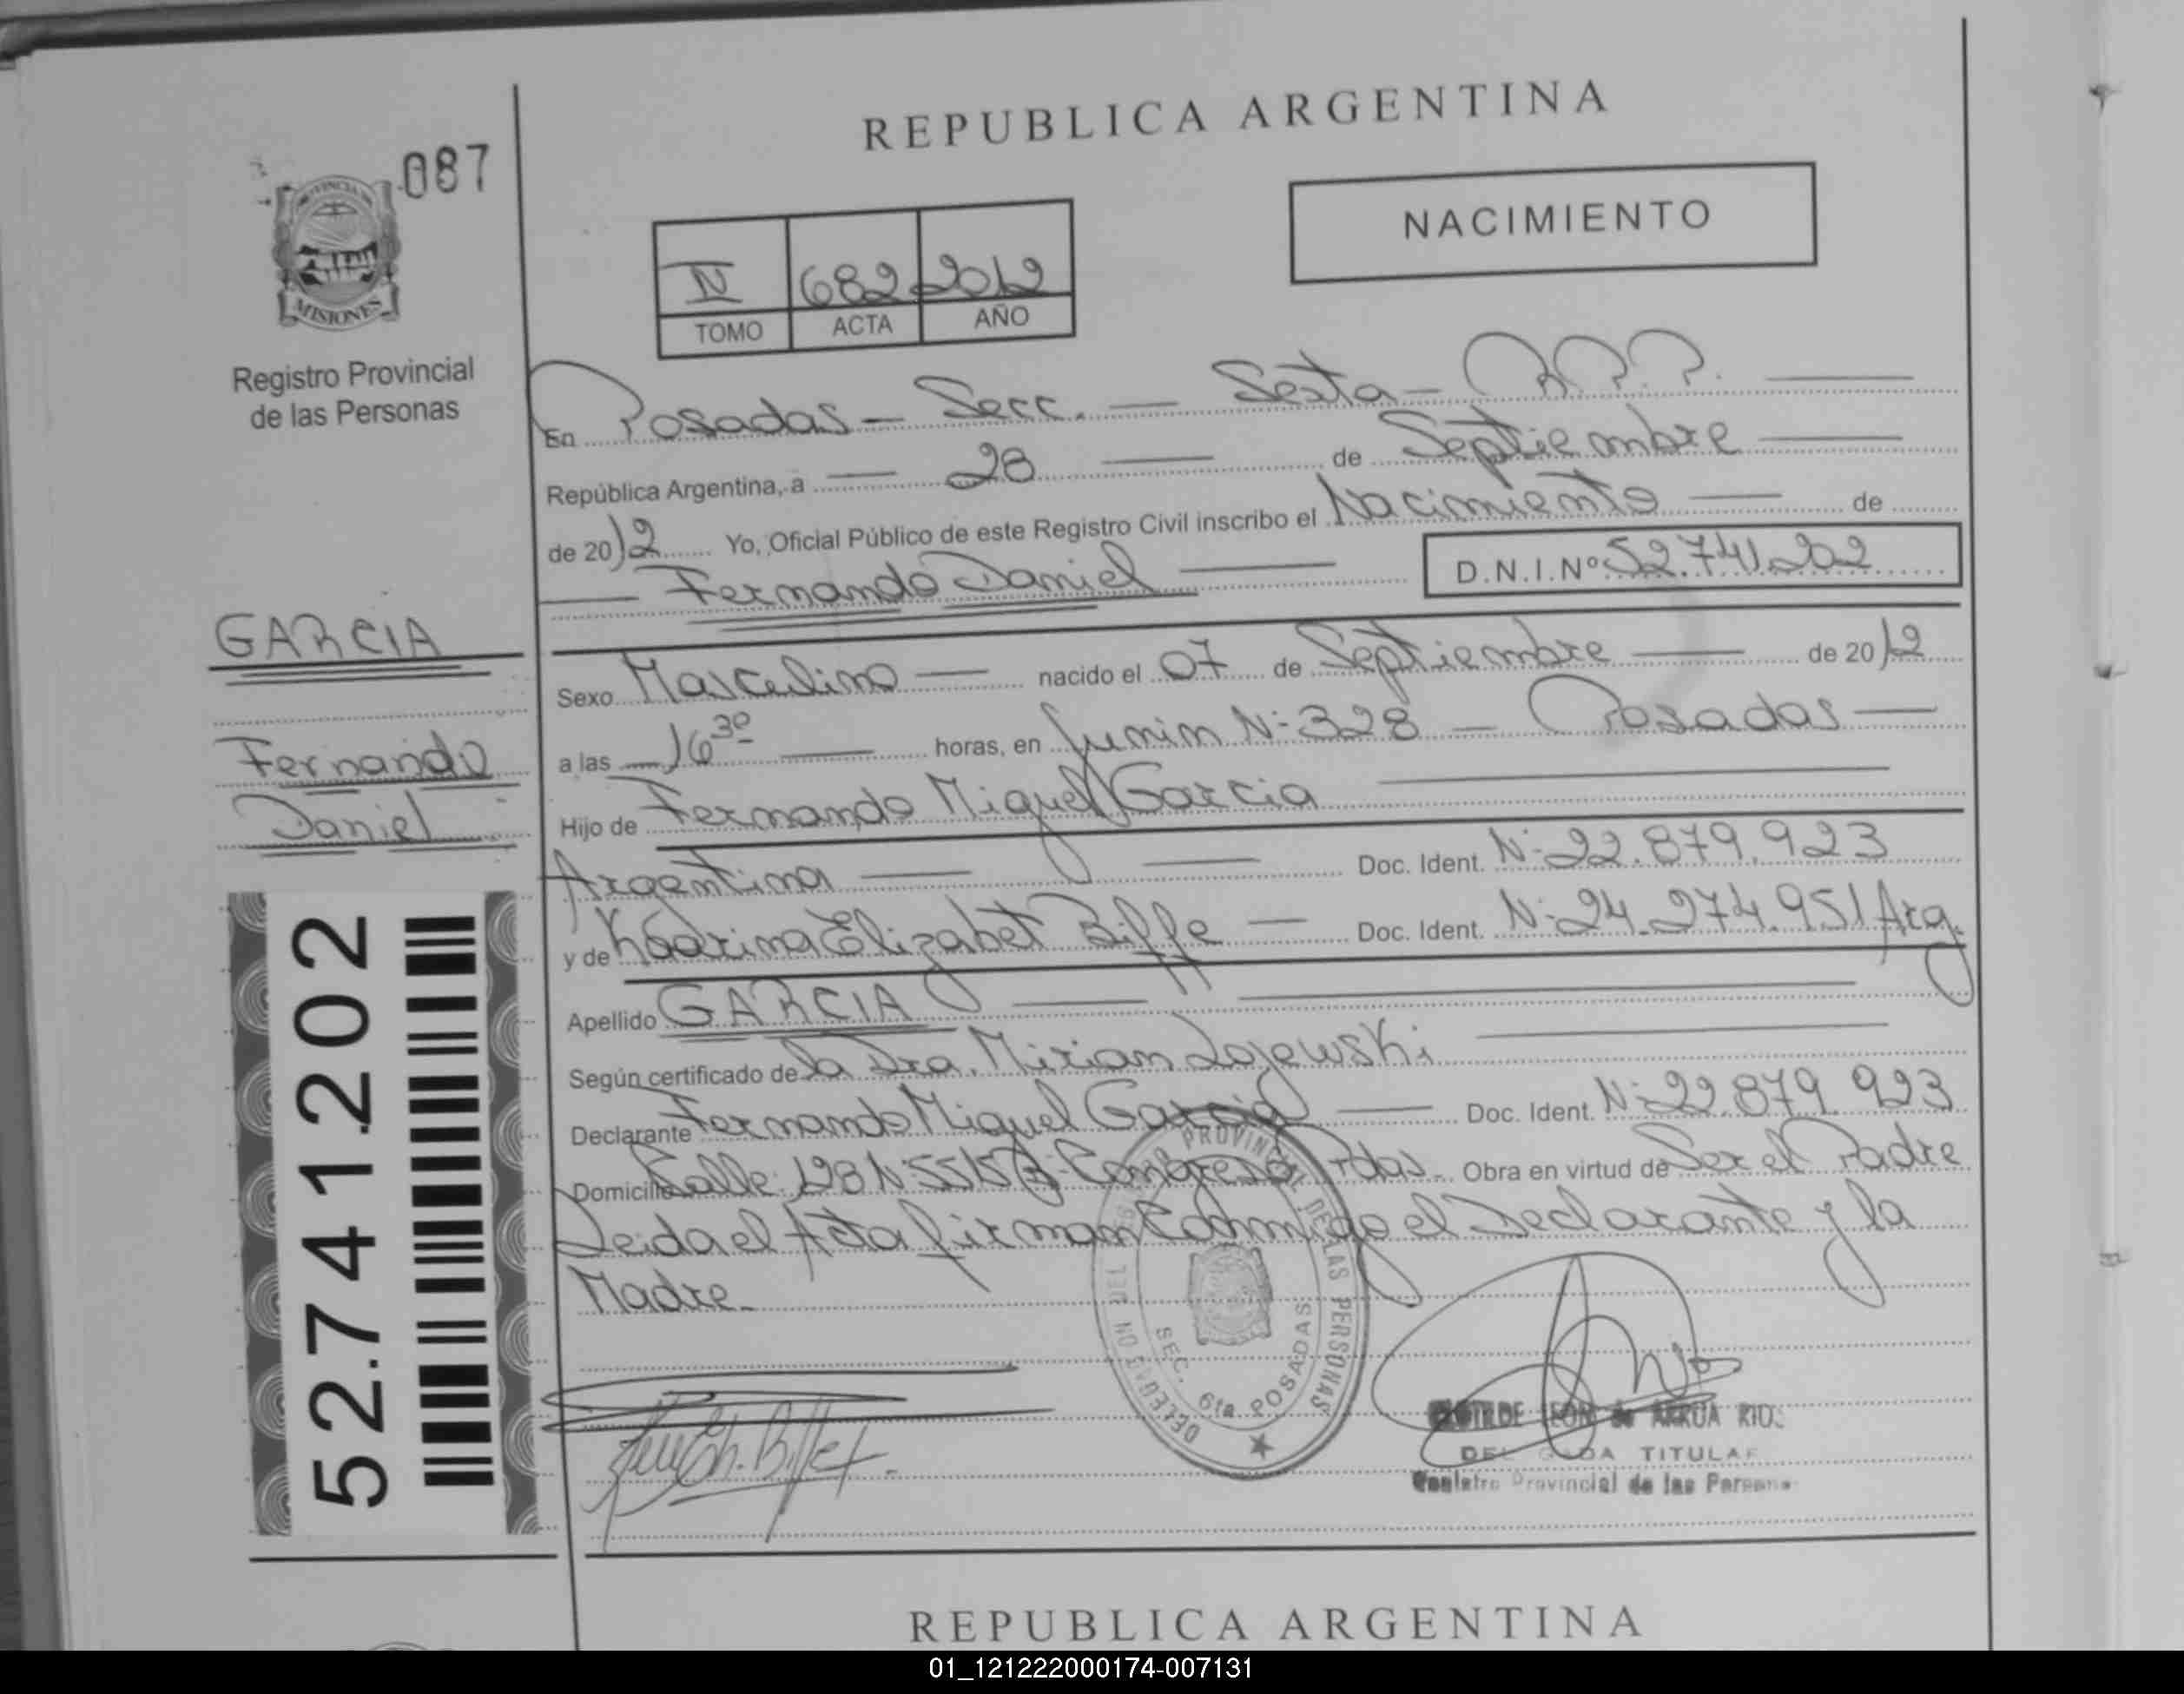 REPUBLICA ARGENTINA
087
NACIMIENTO
IV 682 2012
TOMO ACTA AÑO
MISIONES
Registro Provincial
de las Personas
En Posadas - Secc. - Sexta - R.P.P.
República Argentina, a 28 de Septiembre
de 2012 Yo, Oficial Público de este Registro Civil inscribo el Nacimiento de
Fernando Daniel D.N.I.Nº 52.741.202
GARCIA
Fernando
Daniel
Sexo Masculino nacido el 07 de Septiembre de 2012
a las 16 30 horas, en Junin Nº 328 - Posadas
Hijo de Fernando Miguel Garcia
Argentina Doc. Ident. Nº 22.879.923
y de Elizabet Doc. Ident. Nº 24.274.951 Arg.
Apellido GARCIA
Según certificado de la Dra. Mirian
Declarante Fernando Miguel Garcia Doc. Ident. Nº 22.879.923
Domicilio Calle: Congreso Pdas. Obra en virtud de Ser el Padre
Leida el Acta firman Conmigo el Declarante y la
Madre.
52.741.202
PROVINCIAL DE LAS PERSONAS
SEC. 6ta POSADAS
LEON de ARRUA RIOS
TITULAR
Provincial de las
REPUBLICA ARGENTINA
01_121222000174-007131